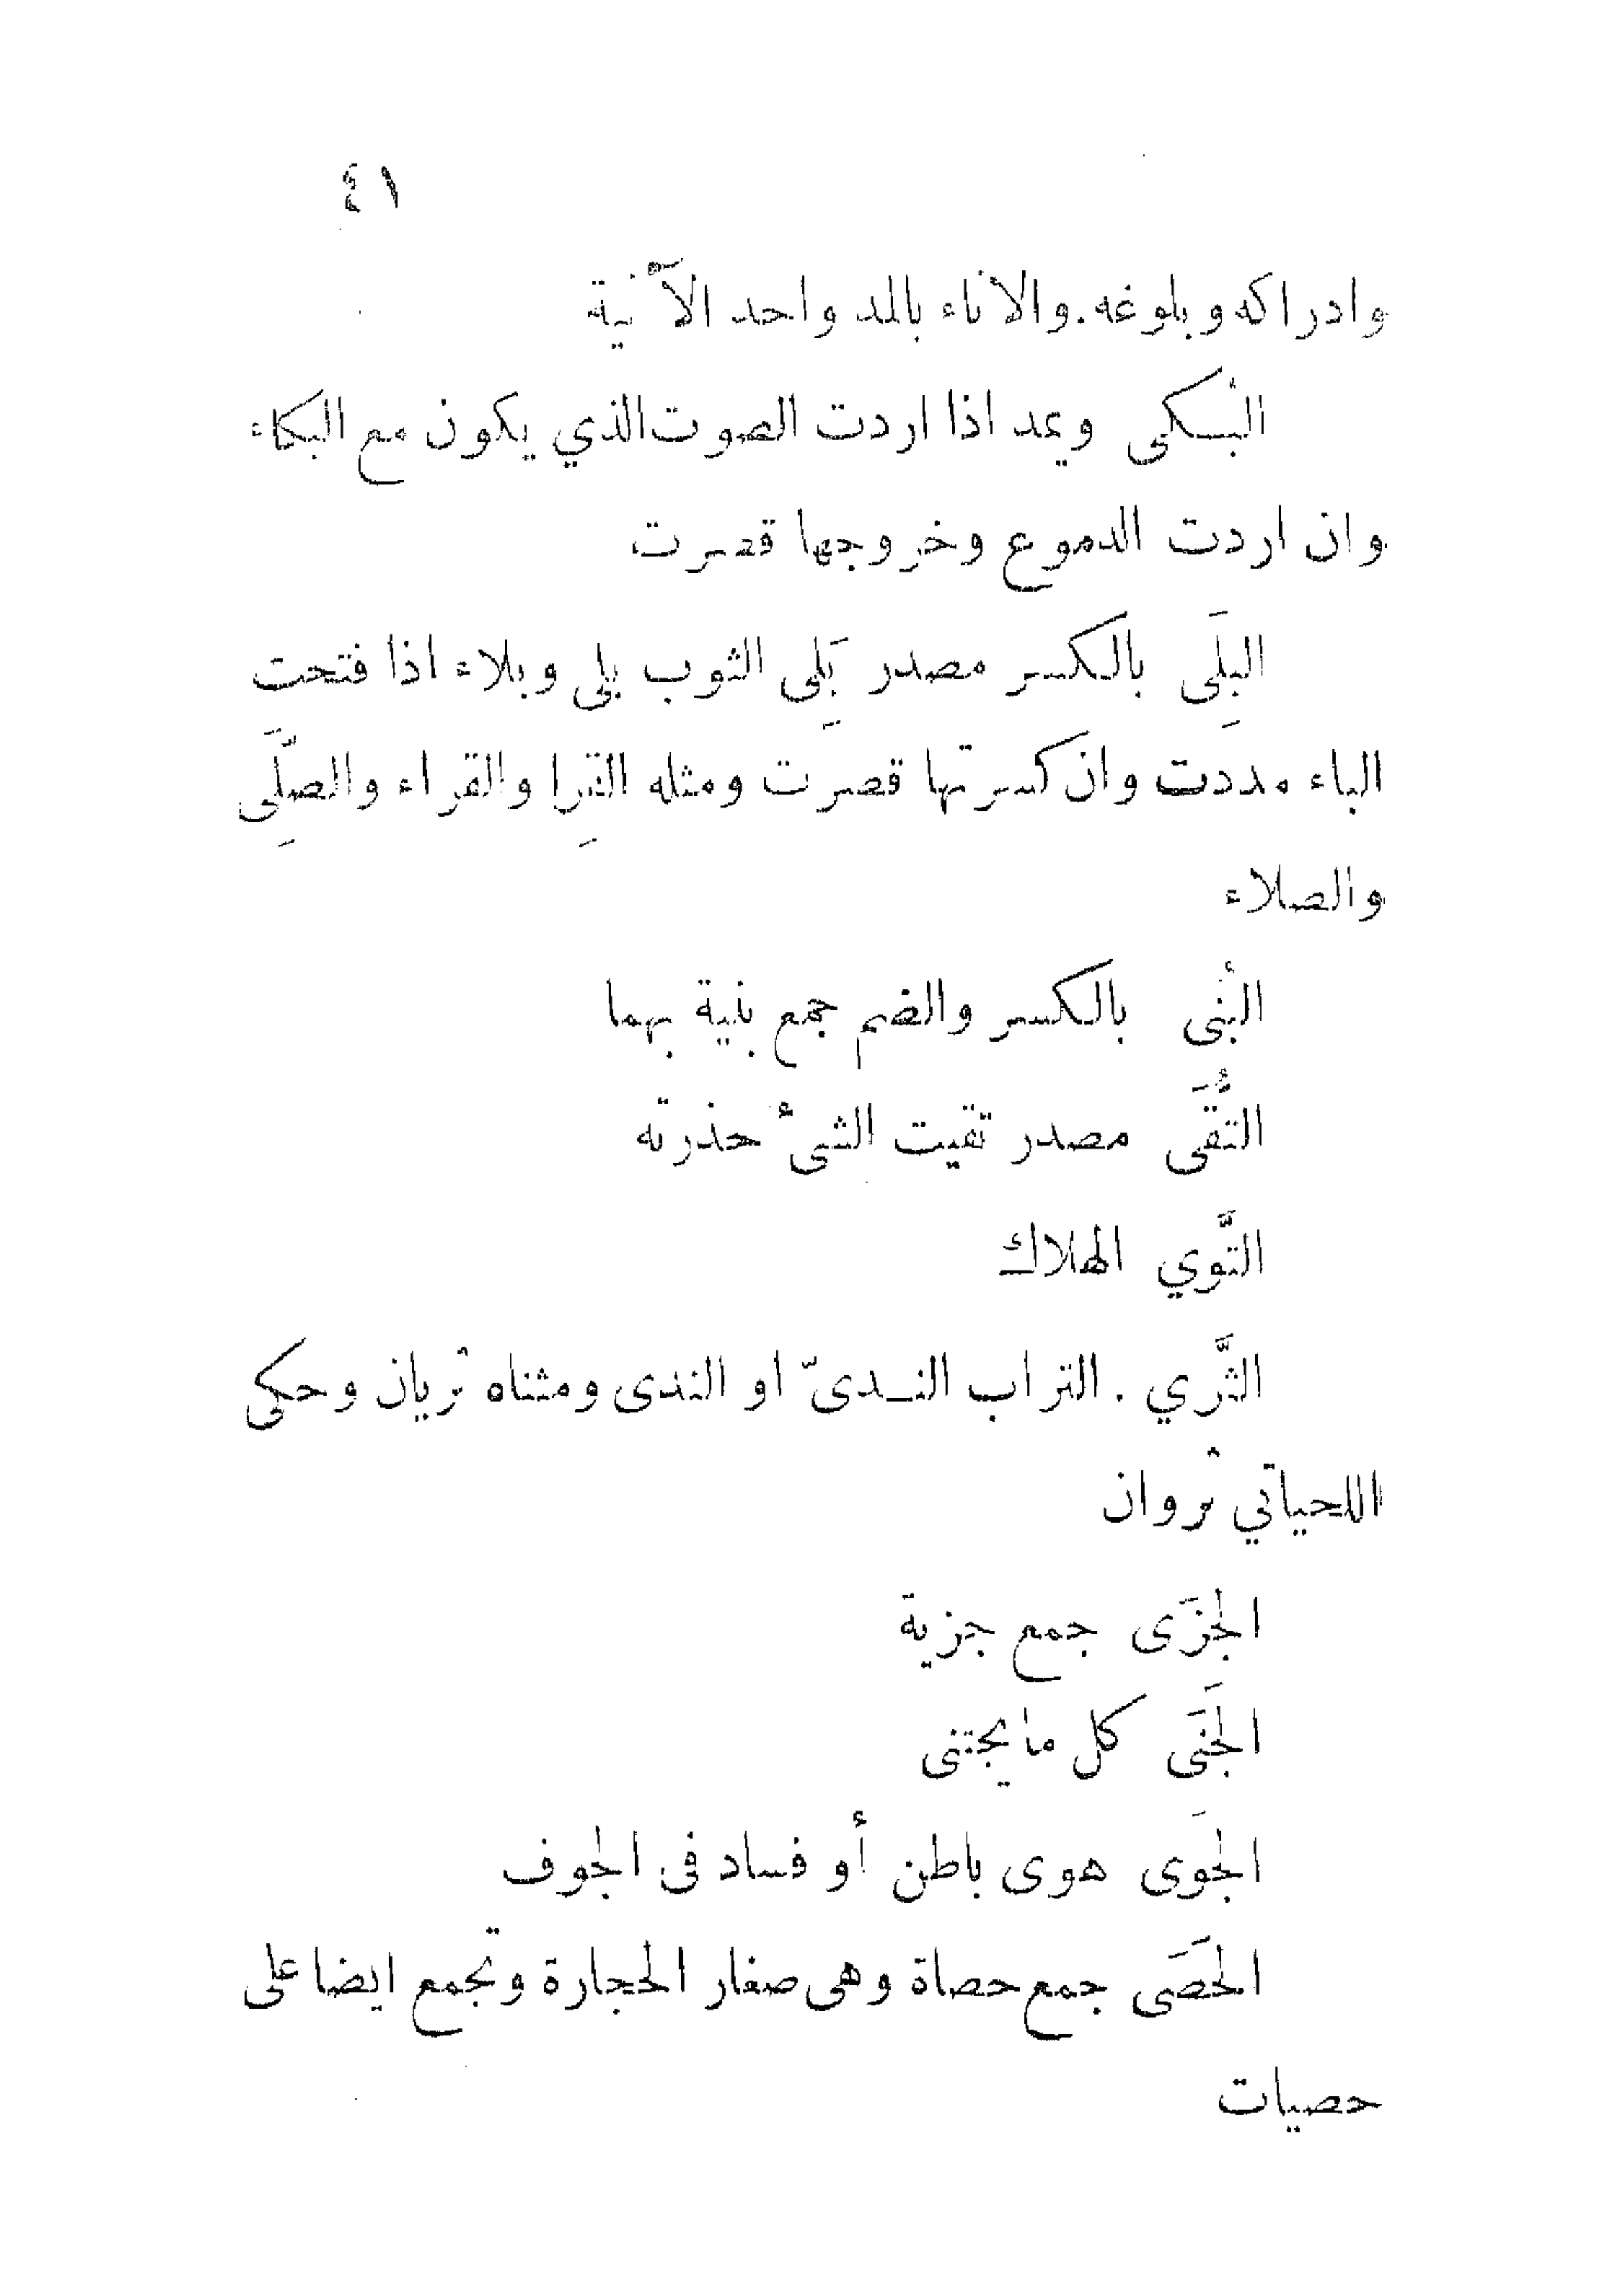 ٤١
وادراكه وبلوغه. والاناء بالمد واحد الآنية
البُكى ويمد اذا اردت الصوت الذي يكون مع البكاء
وان اردت الدموع وخروجها قصرت
البِلَى بالكسر مصدر بَلِى الثوب بلى وبلاء اذا فتحت
الباء مددت وان كسرتها قصرت ومثله القِرا والقراء والصِّلَى
والصلاء
البُنى بالكسر والضم جمع بنية بهما
التُّقَى مصدر تقيت الشىء حذرته
التَّوي الهلاك
الثَّري . التراب الندىّ او الندى ومثناه ثريان وحكى
اللحياتي ثروان
الجزَى جمع جزية
الجَنَى كل ما يجتنى
الجَوى هوى باطن أو فساد فى الجوف
الحَصَى جمع حصاة وهى صغار الحجارة وتجمع ايضا على
حصيات